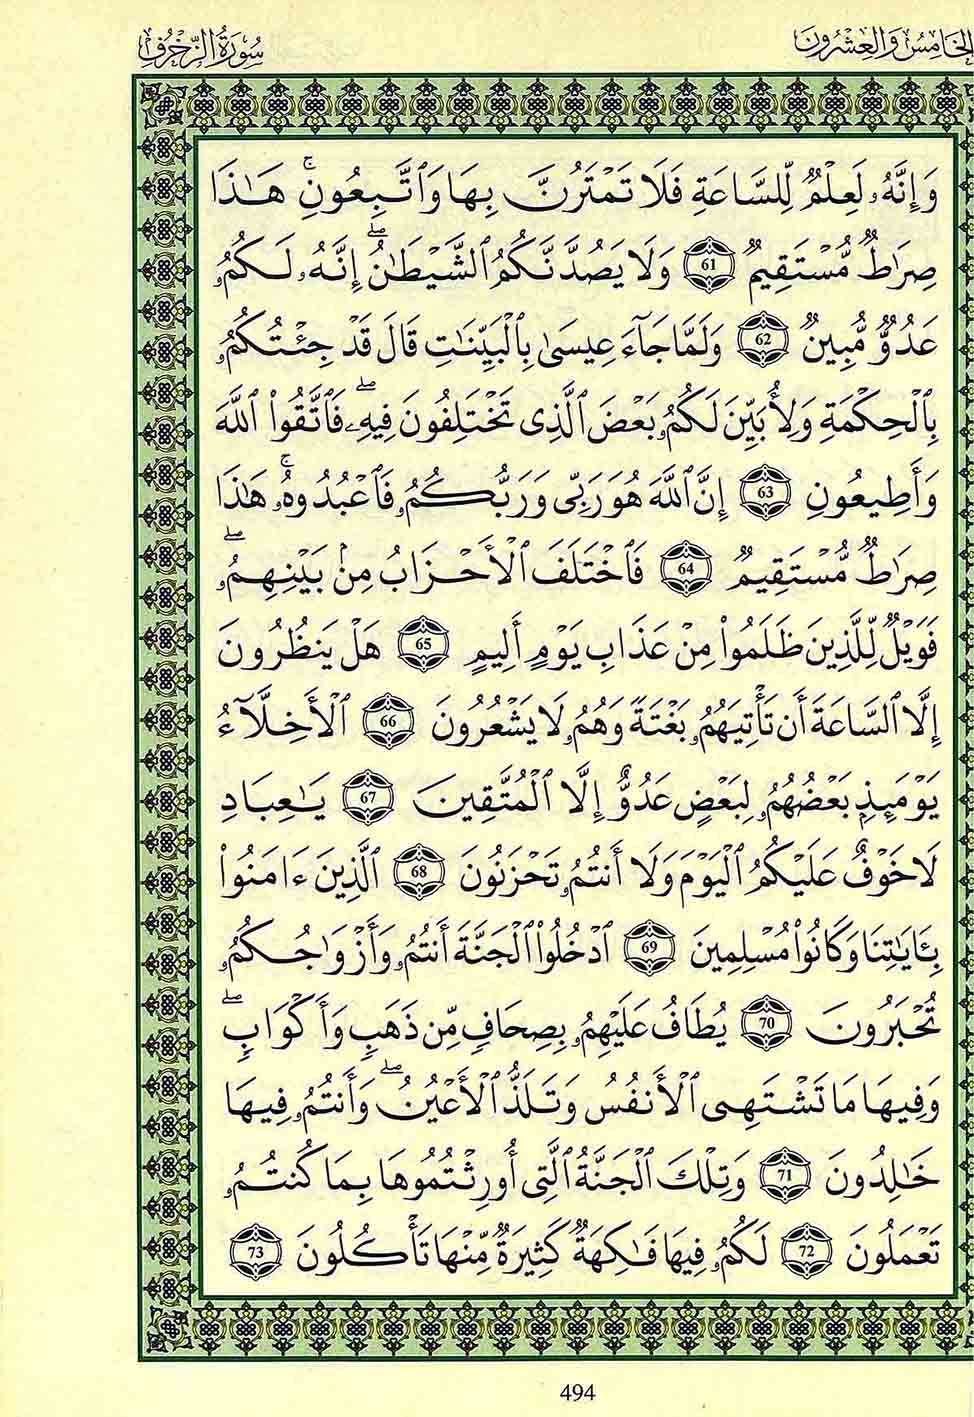 الخامس والعشرون
سورة الزخرف
وَإِنَّهُۥ لَعِلْمٌ لِّلسَّاعَةِ فَلَا تَمْتَرُنَّ بِهَا وَٱتَّبِعُونِۦۚ هَـٰذَا
صِرَٰطٌ مُّسْتَقِيمٌ 61 وَلَا يَصُدَّنَّكُمُ ٱلشَّيْطَـٰنُۖ إِنَّهُۥ لَكُمُۥ
عَدُوٌّ مُّبِينٌ 62 وَلَمَّا جَآءَ عِيسَىٰ بِٱلْبَيِّنَـٰتِ قَالَ قَدْ جِئْتُكُمُۥ
بِٱلْحِكْمَةِ وَلِأُبَيِّنَ لَكُمُۥ بَعْضَ ٱلَّذِى تَخْتَلِفُونَ فِيهِۦۖ فَٱتَّقُوا۟ ٱللَّهَ
وَأَطِيعُونِ 63 إِنَّ ٱللَّهَ هُوَ رَبِّى وَرَبُّكُمُۥ فَٱعْبُدُوهُۥۚ هَـٰذَا
صِرَٰطٌ مُّسْتَقِيمٌ 64 فَٱخْتَلَفَ ٱلْأَحْزَابُ مِنۢ بَيْنِهِمُۥۖ
فَوَيْلٌ لِّلَّذِينَ ظَلَمُوا۟ مِنْ عَذَابِ يَوْمٍ أَلِيمٍ 65 هَلْ يَنظُرُونَ
إِلَّا ٱلسَّاعَةَ أَن تَأْتِيَهُمُۥ بَغْتَةً وَهُمُۥ لَا يَشْعُرُونَ 66 ٱلْأَخِلَّآءُ
يَوْمَئِذٍۭ بَعْضُهُمُۥ لِبَعْضٍ عَدُوٌّ إِلَّا ٱلْمُتَّقِينَ 67 يَـٰعِبَادِ
لَا خَوْفٌ عَلَيْكُمُ ٱلْيَوْمَ وَلَا أَنتُمُۥ تَحْزَنُونَ 68 ٱلَّذِينَ ءَامَنُوا۟
بِـَٔايَـٰتِنَا وَكَانُوا۟ مُسْلِمِينَ 69 ٱدْخُلُوا۟ ٱلْجَنَّةَ أَنتُمُۥ وَأَزْوَٰجُكُمُۥ
تُحْبَرُونَ 70 يُطَافُ عَلَيْهِمُۥ بِصِحَافٍ مِّن ذَهَبٍ وَأَكْوَابٍۖ
وَفِيهَا مَا تَشْتَهِى ٱلْأَنفُسُ وَتَلَذُّ ٱلْأَعْيُنُۖ وَأَنتُمُۥ فِيهَا
خَـٰلِدُونَ 71 وَتِلْكَ ٱلْجَنَّةُ ٱلَّتِى أُورِثْتُمُوهَا بِمَا كُنتُمُۥ
تَعْمَلُونَ 72 لَكُمُۥ فِيهَا فَـٰكِهَةٌ كَثِيرَةٌ مِّنْهَا تَأْكُلُونَ 73
494